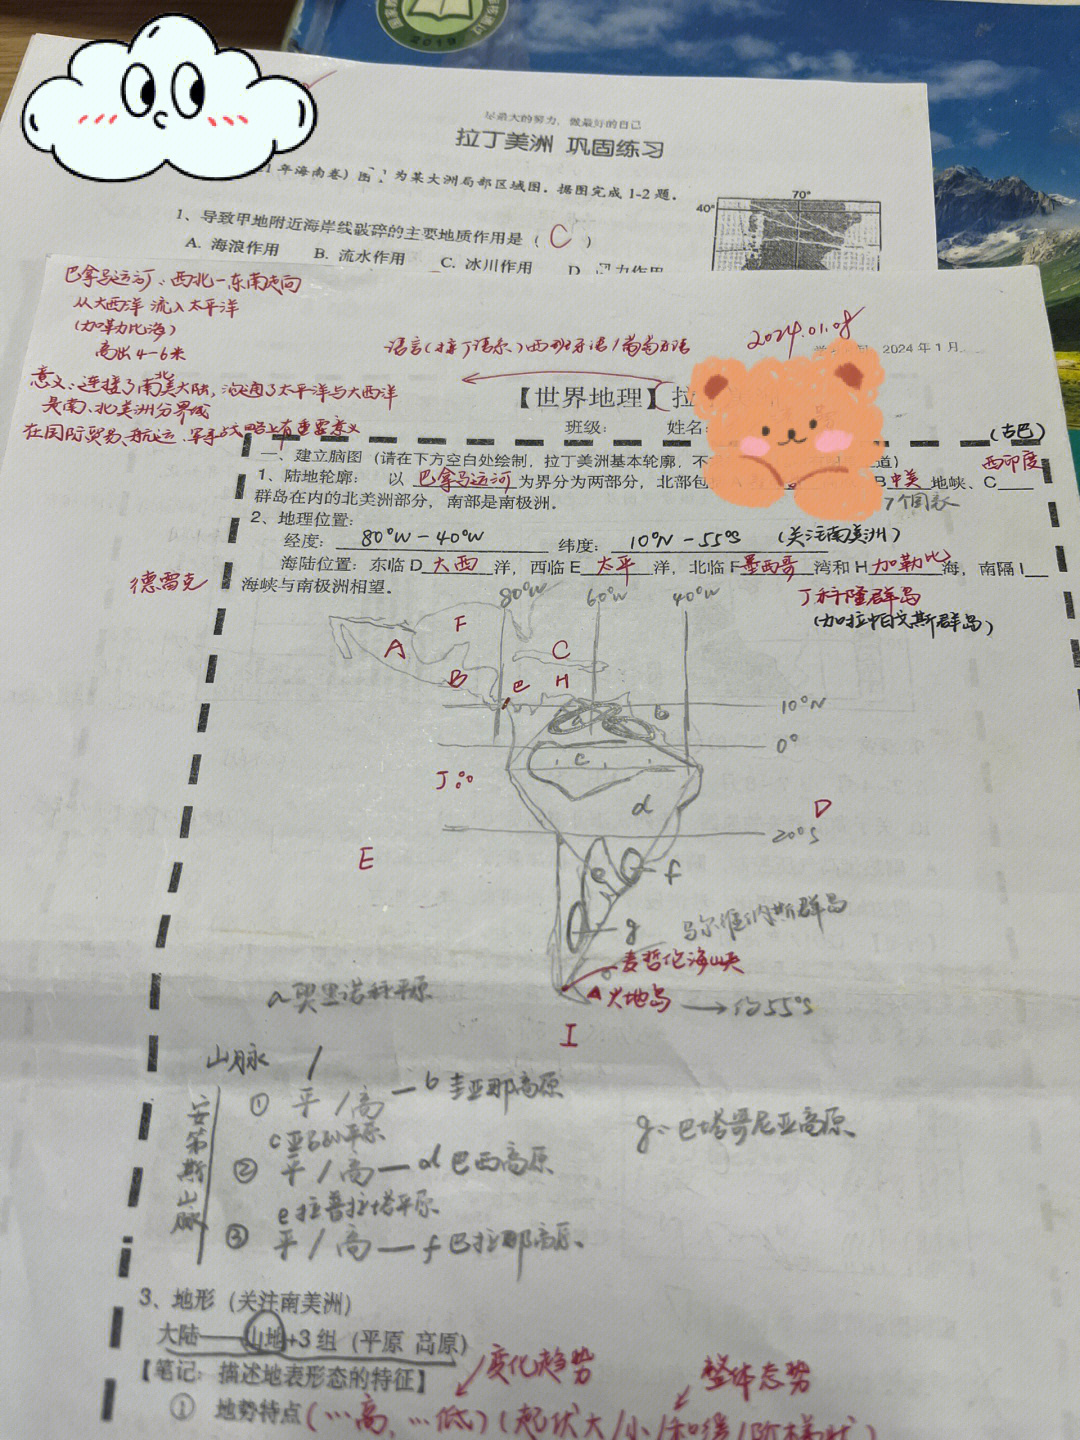 尽最大的努力，做最好的自己
拉丁美洲 巩固练习
年海南卷）图 为某大洲局部区域图。据图完成 1-2 题。
70°
40°
1、导致甲地附近海岸线破碎的主要地质作用是（ C ）
A. 海浪作用 B. 流水作用 C. 冰川作用 D. 风力作用
巴拿马运河：西北—东南走向
从大西洋 流入太平洋
(加勒比海)
高出4-6米
语言(拉丁语系)西班牙语/葡萄牙语
2024.01.08
2024 年 1 月
意义：连接了南北美大陆，沟通了太平洋与大西洋
是南、北美洲分界线
在国际贸易、航运、军事战略上有重要意义
【世界地理】拉
班级： 姓名：
(古巴)
一、建立脑图（请在下方空白处绘制，拉丁美洲基本轮廓，不 道）
西印度
1、陆地轮廓： 以 巴拿马运河 为界分为两部分，北部包 B中美 地峡、C
群岛在内的北美洲部分，南部是南极洲。
7个国家
2、地理位置：
经度： 80°W－40°W 纬度： 10°N－55°S (关注南美洲)
海陆位置：东临 D 大西 洋，西临 E 太平 洋，北临 F 墨西哥 湾和 H 加勒比 海，南隔 I
德雷克 海峡与南极洲相望。
J科隆群岛
(加拉帕戈斯群岛)
80°W 60°W 40°W
F
A
C
B e H
10°N
a b
0°
c
J
d
D
20°S
E
e f
g 马尔维纳斯群岛
麦哲伦海峡
火地岛 → 约55°S
a奥里诺科平原
I
山脉 /
安第斯山脉
① 平/高—b 圭亚那高原
g：巴塔哥尼亚高原、
c亚马孙平原
② 平/高—d 巴西高原
e拉普拉塔平原
③ 平/高—f 巴拉那高原、
3、地形（关注南美洲）
大陆——山地+3 组（平原 高原）
变化趋势 整体态势
【笔记：描述地表形态的特征】
① 地势特点(…高，…低)(起伏大/小/和缓/阶梯状)